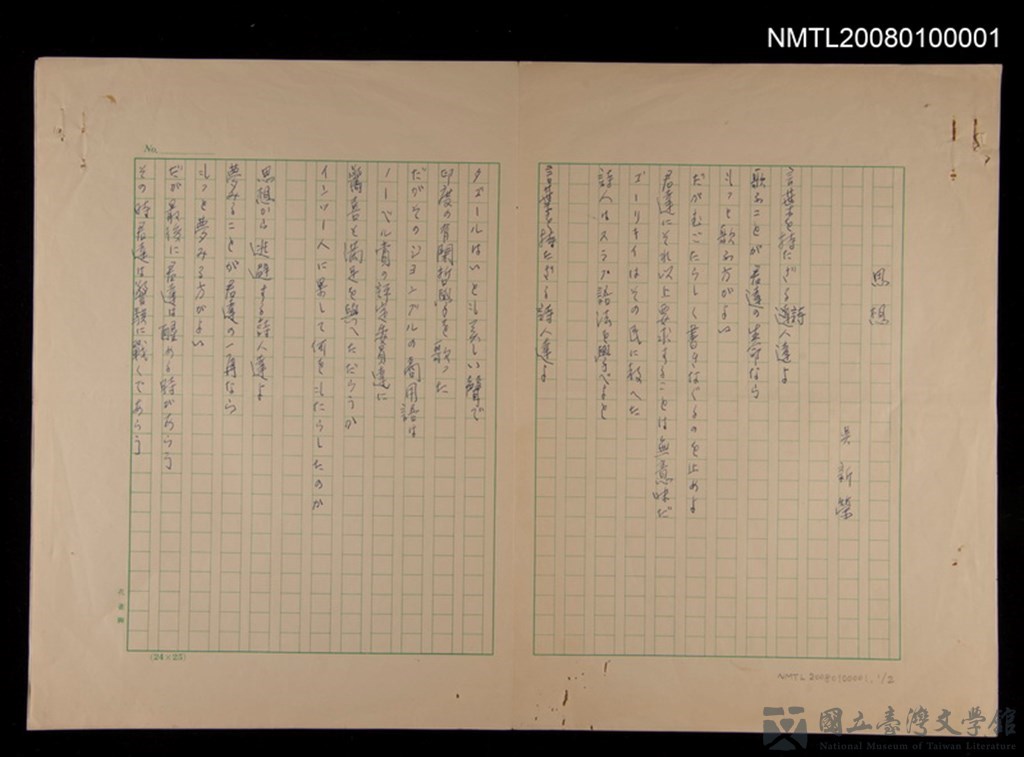 NMTL20080100001
思想
吳新榮
言葉を持たざる詩人達よ
歌ふことが君達の生命なら
もっと歌ふ方がよい
だがむごたらしく書きなぐるのを止めよ
君達にそれ以上要求することは無意味だ
ゴーリキイはその民に教へた
詩人はスラブ語法を學ぶべしと
言葉を持たざる詩人達よ
No.
タゴールはいとも美しい聲で
印度の有閑哲學を歌った
だがそのジョンブルの商用語は
ノーベル賞の評定委員達に
驚喜と満足を與へただらうか
インド人に果して何をもたらしたのか
思想から逃避する詩人達よ
夢みることが君達の一再なら
もっと夢みる方がよい
だが最後に君達は醒める時があらう
その時君達は
(24×25)
NMTL 20080100001, 1/2
國立臺灣文學館
National Museum of Taiwan Literature